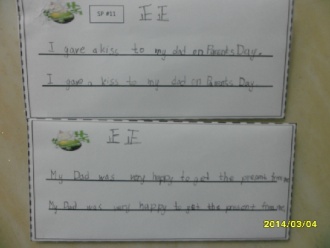 SP #21 正正
I gave a kiss to my dad on Parents Day.
I gave a kiss to my dad on Parents Day
正正
My Dad was very happy to get the present from me
My Dad was very happy to get the present from me
2014/03/04